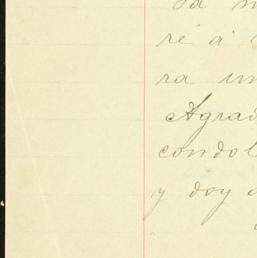 ré á
ra un
Agrad
condol
y doy